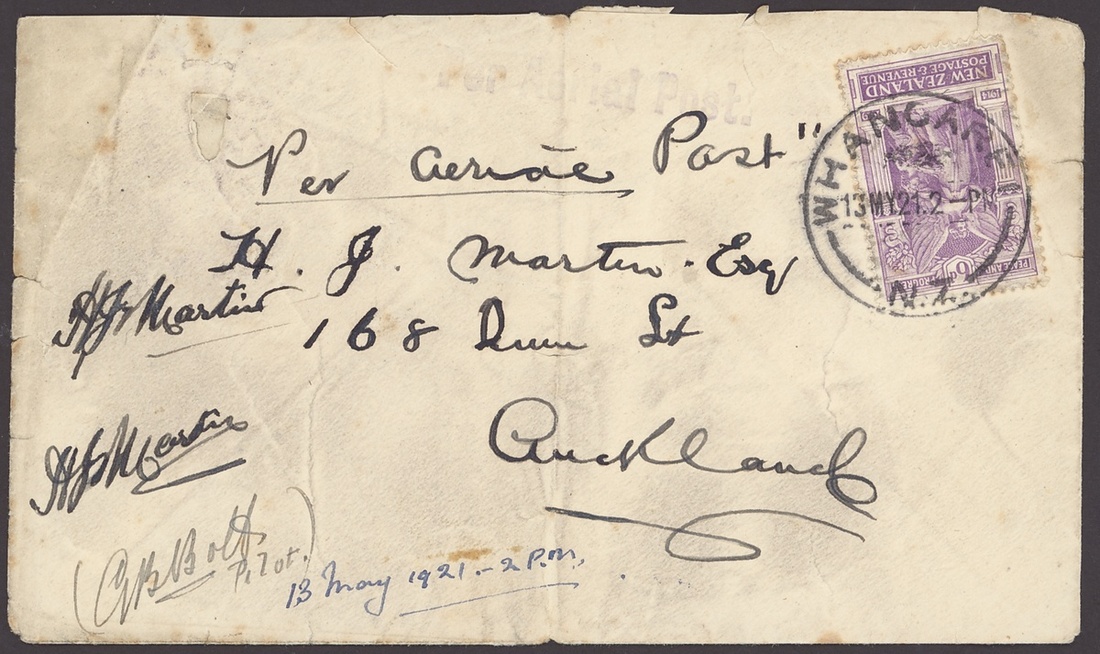 Per Aerial Post
Per aeriae Post"
H. J. Martin. Esq
168
St
Auckland
H J Martin
H J Martin
(G B Bolt
Pilot.)
13 May 1921. - 2 P.m.
NEW ZEALAND
POSTAGE & REVENUE
1914
6
WHANGAREI
13 MY 21. 2 - PM
N.Z.